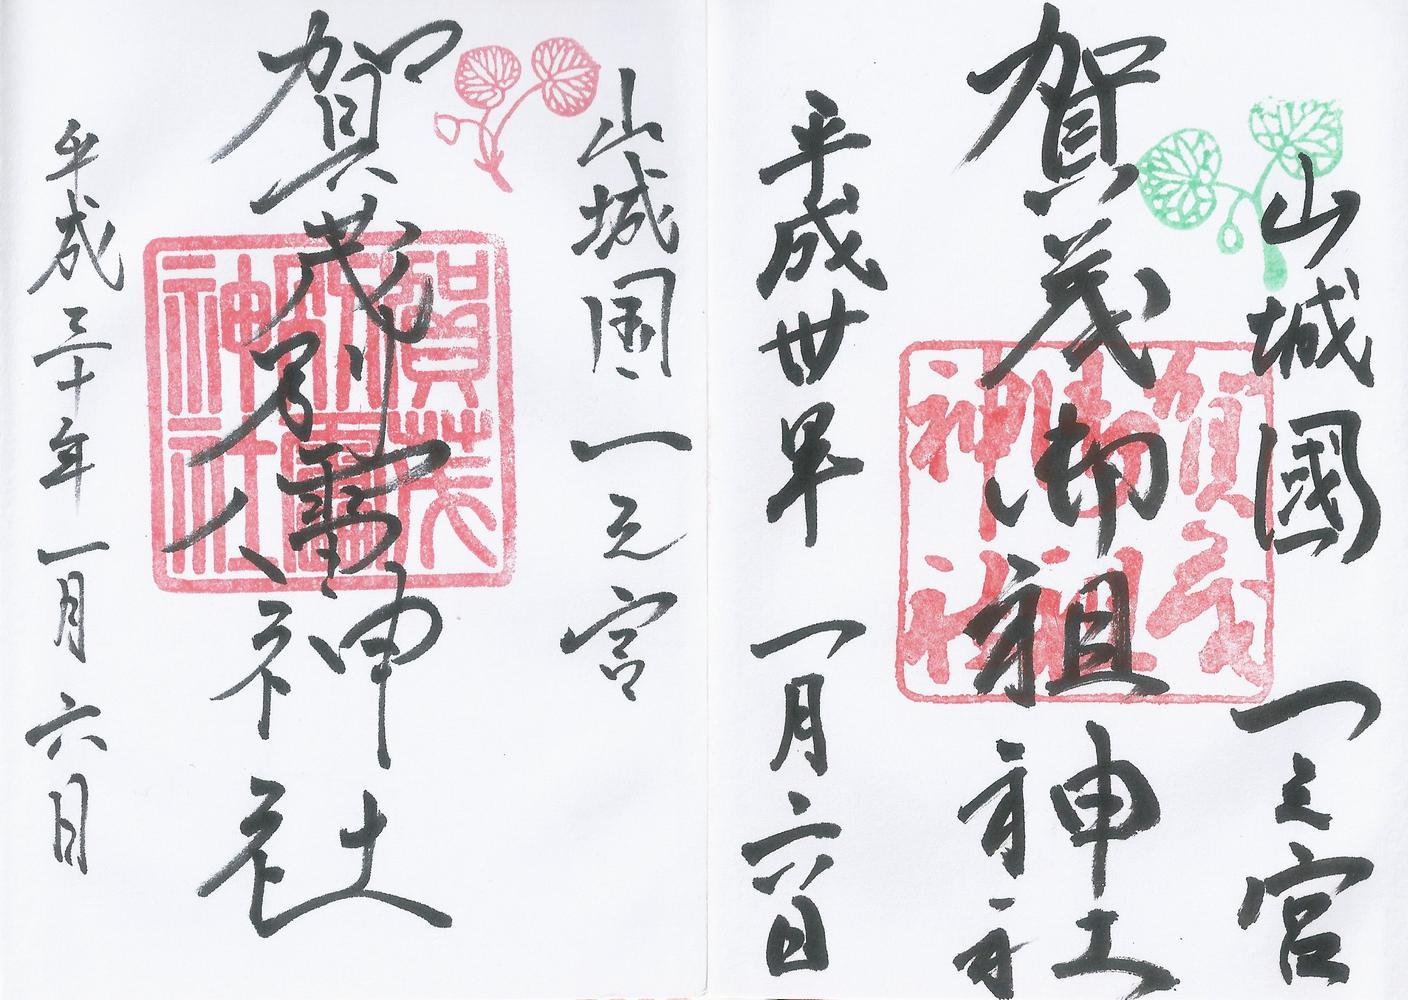 山城國一之宮
賀茂御祖神社
賀茂御祖神社
平成卅年一月六日
山城国一之宮
賀茂別雷神社
賀茂別雷神社
平成三十年一月六日